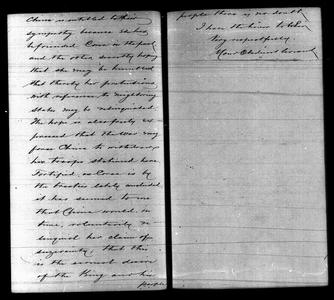 China is entitled to their
sympathy because she has
befriended Corea in the past
and the other, secretly hoping
that she may be humbled
that thereby her pretentions
with reference to neighboring
States may be relinquished.
The hope is also freely ex-
pressed that the War may
force China to withdraw
her troops stationed here.
Fortified, as Corea is by
the treaties lately concluded
it has seemed to me
that China would, in
time, voluntarily re-
linquish her claim of
suzerainty. That this
is the earnest desire
of the King and his
people
people there is no doubt.
I have the honor to be
Very respectfully
Your Obedient Servant